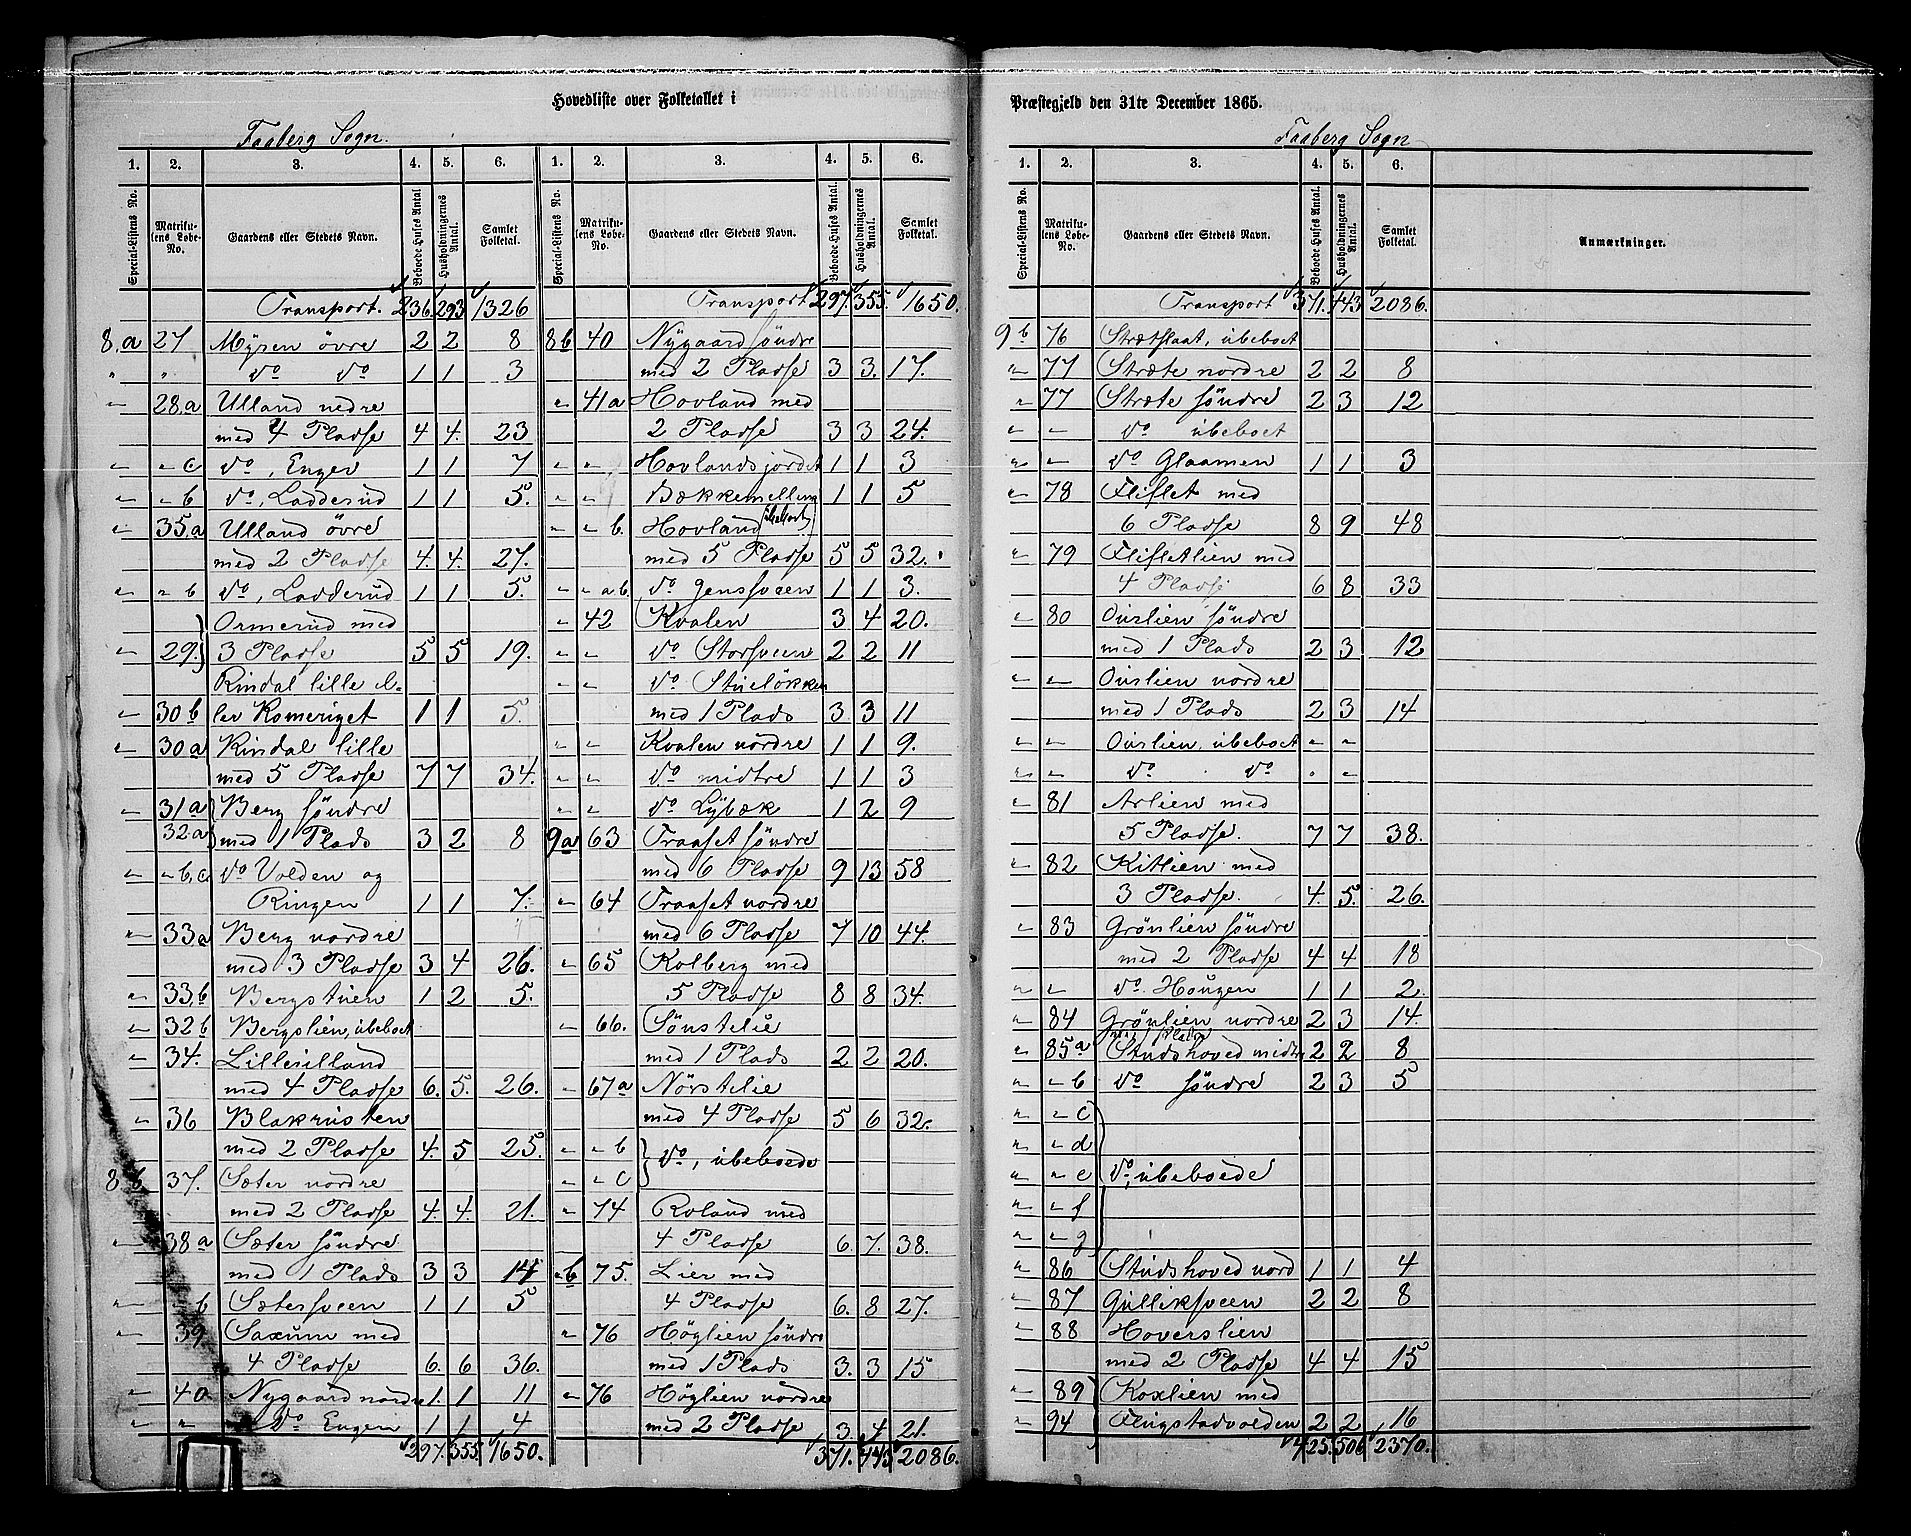 Hovedliste over Folketallet i
Faaberg Sogn.
1. 2. 3. 4. 5. 6. 1. 2. 3. 4. 5. 6.
Special-Listens No. Matrikulens Løbe-No. Gaardens eller Stedets Navn. Beboede Huses Antal Husholdningernes Antal. Samlet Folketal. Special-Listens No. Matrikulens Løbe-No. Gaardens eller Stedets Navn. Beboede Huses Antal. Husholdningernes Antal. Samlet Folketal.
Transport. 236. 293 1326
8.a 27 Mÿren övre 2 2 8
" " do do 1 1 3
" 28.a Ulland nedre
med 4 Pladse 4 4. 23
" " c do, Enger 1 1 7
" " b do, Ladderud 1 1 5.
" 35.a Ulland övre
med 2 Pladse 4. 4. 27.
" " b do, Ladderud 1 1 5.
Ormerud med
" 29. 3 Pladse 5 5 19.
Rindal lille el-
" 30b ler Romeriget 1 1 5.
" 30a Rindal lille
med 5 Pladse 7 7 34.
" 31a Berg söndre
32a med 1 Plads 3 2 8
" " b.c. do Volden og
Ringen 1 1 7.
" 33a Berg nordre
med 3 Pladse 3 4 26.
" 33.b Bergstuen 1 2 5.
" 32b Bergslien, ubeboet
" 34. Lilleulland
med 4 Pladse 6. 5. 26.
" 36 Blakrusten
med 2 Pladse 4. 5 25.
8b 37. Sæter nordre
med 2 Pladse 4. 4. 21.
" 38a Sæter söndre
med 1 Plads 3 3 14
" b Sætersveen 1 1 5
" 39 Saxum med
4 Pladse 6. 6 36.
" 40 Nygaard nordre 1. 1 11
" " do Engen 1 1 4
297. 355. 1650.
Transport 297. 355. 1650.
8b 40 Nÿgaard söndre
med 2 Pladse 3 3. 17.
" 41a Hovland med
2 Pladse 3 3 24.
" " Hovlandsjordet 1 1 3
" " Bækkemellem 1 1 5
" " b. Hovland (ubeboet)
med 5 Pladse 5 5 32.
" " a b. do Jenssveen 1 1 3.
" 42 Kvalen 3 4 20.
" " do Storsveen 2 2 11
" " do Stuelökken
med 1 Plads 3 3 11
" " Kvalen nordre 1 1 9.
" " do midtre 1 1 3
" " do Lÿbæk 1 2 9
9a 63 Traaset söndre
med 6 Pladse 9 13 58
" 64 Traaset nordre
med 6 Pladse 7 10 44.
" 65 Kolberg med
5 Pladse 8 8 34.
" 66. Sönstelie
med 1 Plads 2 2 20.
" 67a Nörstelie
med 4 Pladse 5 6 32.
" " b do, ubeboede
" " c
" 74 Roland med
4 Pladse 6. 7. 38.
" b 75. Lier med
4 Pladse 6. 8 27.
" 76 Höglien söndre
med 1 Plads 3. 3 15
" 76 Höglien nordre
med 2 Pladse 3. 4 21.
371. 443 2086.
Præstegjeld den 31te December 1865.
Faaberg Sogn
1. 2. 3. 4. 5. 6.
Special-Listens No. Matrikulens Løbe-No. Gaardens eller Stedets Navn. Beboede Huses Antal. Husholdningernes Antal. Samlet Folketal. Anmærkninger.
Transport 371. 443 2086.
9b 76 Strætflaat, ubeboet
" 77 Stræte nordre 2 2 8
" 77 Stræte söndre 2 3 12
" " do ubeboet
" " do Glaamen 1 1 3
" 78 Fliflet med
6 Pladse 8 9 48
" 79 Flifletlien med
4 Pladse 6 8 33
" 80 Ourlien söndre
med 1 Plads 2 3 12
" " Ourlien nordre
med 1 Plads 2 3 14
" " Ourlien, ubeboet " "
" " do do " "
" 81 Arlien med
5 Pladse. 7 7 38.
" 82 Kitlien med
3 Pladse. 4. 5. 26.
" 83 Grönlien söndre
med 2 Pladse 4 4 18
" " do. Hougen 1 1 2.
" 84 Grönlien nordre 2 3 14.
med 1 Plads
" 85a Studshoved midtre 2 2 8
" " b do söndre 2 3 5
" " c
" " d
" " e do, ubeboede
" " f
" " g
" 86 Studshoved nord 1 1 4
" 87 Gulliksveen 2 2 8
" 88 Hoverslien
med 2 Pladse 4 4 15
" 89 Koxlien med
" 94 Flugstadvolden 2 2 16
425. 506 2370.